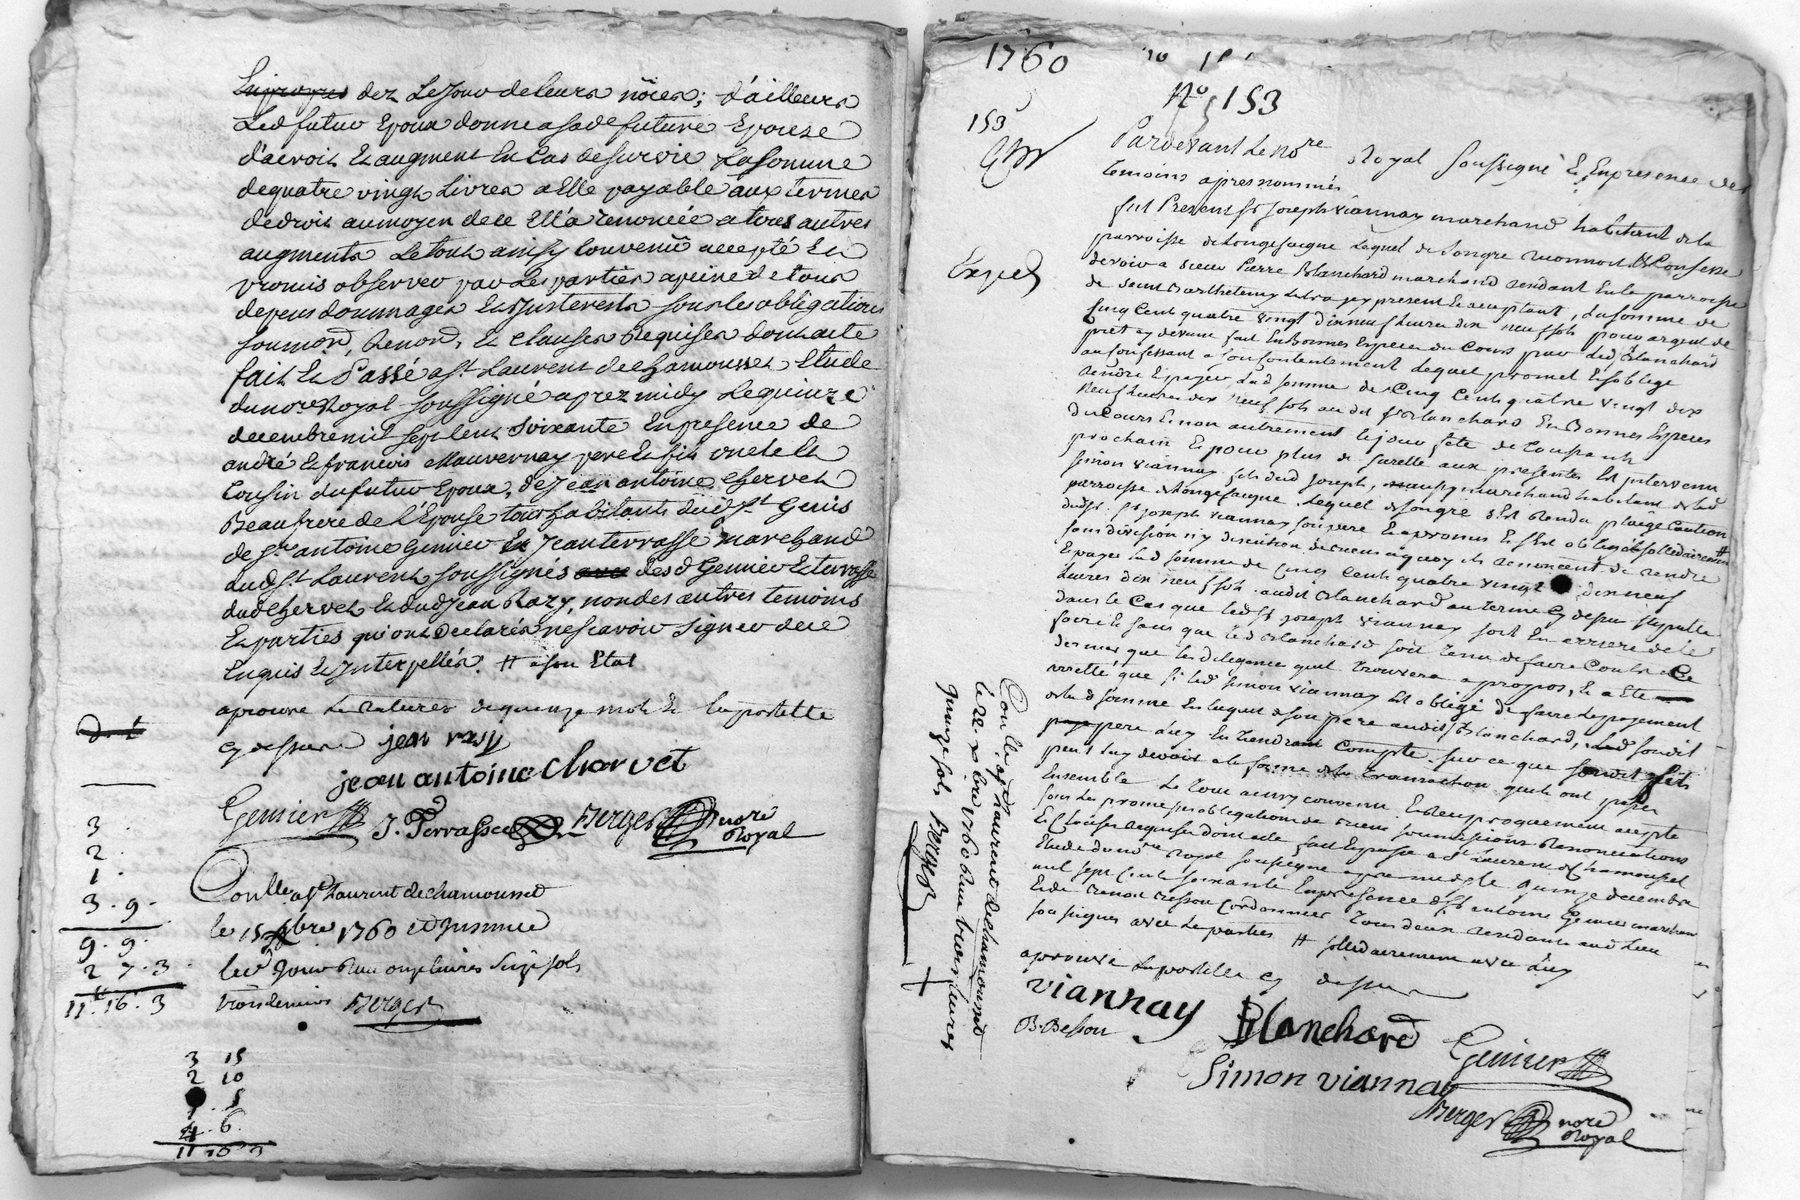 dez Le Jour de leurs nôces; d'ailleurs
Led futur Epoux donne a sade future Epouze
d'acroit Et augment En Cas de survie La somme
de quatre vingt Livres a Elle payable aux termes
de droit au moyen de ce Ell'a renoncée a tous autres
augments Le tout ainsy Convenû accepté Et
promis observer par Les parties a peine de tous
depens dommages Et Interests sous les obligations
soumon, Renon, Et clauses Requises dont acte
fait Et Passé a St Laurent de chamousset Etude
du nore Royal soussigné aprez midy Le quinze
decembre mil sept cent soixante En presence de
andré Et francois Mauvernay pere Et fils oncle Et
Cousin du futur Epoux, de Jean antoine Chervet
Beaufrere de L'Epouse tous habitants dud St Genis
de Sr antoine Genier Et Jean terrasse marchand
dud St Laurent soussignés des d Genier Et terrasse
dud Chervet Et dud Jean Razy, non des autres temoins
Et parties qui ont declarés ne scavoir signer de ce
Enquis Et Interpellés. # a son Etat
aprouve La rature de quinze mots Et la postille
cy dessus jean razy
jean antoine Charvet
Genier J. Terrasse Berger nore
Royal
3
2
1
3 . 9 .
9 . 9 .
2 . 7 . 3
11 . 16 . 3
Conlle a St Laurent de chamousset
le 15 xbre 1760 et Insinué
led Jour Reçu onze livres seize sols
trois deniers Berger
3 15
2 10
5
6
1760
No 153
153
Pardevant Le nore Royal soussigné Et En presence des
temoins apres nommés
fut Present Sr Joseph Viannay marchand habitant de la
parroisse de Longessaigne Lequel de son gre Reconnoit Et Confesse
devoir a sieur Pierre Blanchard marchand Rendant En la parroisse
de Saint Barthelemy Lestra cy present Et acceptant, La somme de
Cinq Cent quatre vingt dix neuf Livres dix neuf sols pour argent de
pret cy devant fait En Bonnes Especes du Cours par Led Blanchard
Lequel promet Et s'oblige
rendre Et payer Lad somme de Cinq Cent quatre vingt dix
neuf Livres dix neuf sols aud Sr Blanchard En Bonnes Especes
du Cours Et non autrement Le jour fete de Toussaint
prochain Et pour plus de surette aux presentes Est intervenu
simon Viannay fils dud Joseph, aussy marchand habitant de lad
parroisse de Longessaigne Lequel de son gre s'Est Rendu pleige Caution
dud Sr Joseph Viannay son pere Et a promis Et s'Est obligé sollidairement #
sans division ny discution de rendre
Et payer Lad somme de Cinq Cent quatre vingt dix neuf
Livres dix neuf sols aud Blanchard au terme cy dessus stipullé
dans le Cas que led Sr Joseph Viannay soit En arriere de le
faire Et sans que led Blanchard soit tenu de faire Contre
que les diligences quil trouvera a propos, Et a Ete
arretté que si led Simon Viannay Est obligé de faire Le payement
de lad somme En lacquit de son pere aud Sr Blanchard,
pere d'luy En tiendra Compte sur ce que
peut luy devoir a la forme de la transaction quils ont passé
Ensemble Le tout ainsy convenu Et Reciproquement accepté
sous Les promesses obligations de soumissions Renonciations
Et Clauses Requises dont acte fait Et passé a St Laurent de Chamousset
Etude du nre Royal soussigné apres midy Le quinze decembre
mil sept Cent soixante En presence de Sr antoine Genier marchand
Et de Benoit Besson Cordonnier tous deux Residants aud Lieu
soussignes avec Les parties # sollidairement avec Luy
aprouvé La postille cy dessus
Viannay Blanchard
B. Besson Genier
Simon viannay
Berger nore
Royal
Conlle a St Laurent de chamousset
le 22 xbre 1760 Reçu trois livres
quinze sols Berger